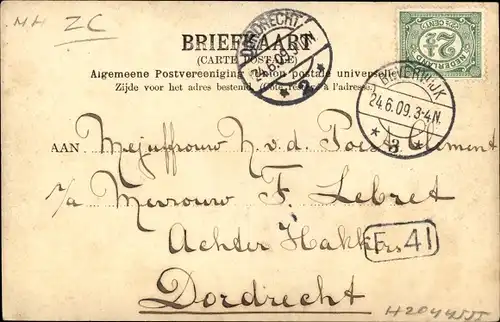 MH ZC
BRIEFKAART
(CARTE POSTALE)
Algemeene Postvereeniging Union postale universelle
Zijde voor het adres bestemd. (Côté réservé à l'adresse.)
DORDRECHT
24.6.09. 4-5N
2
NEDERLAND
2½
BEVERWIJK
24.6.09.3-4N.
3
AAN Mejuffrouw N. v.d. Poest Clement
p/a Mevrouw F. Lebret
Achter Hakkers
F. 41
Dordrecht